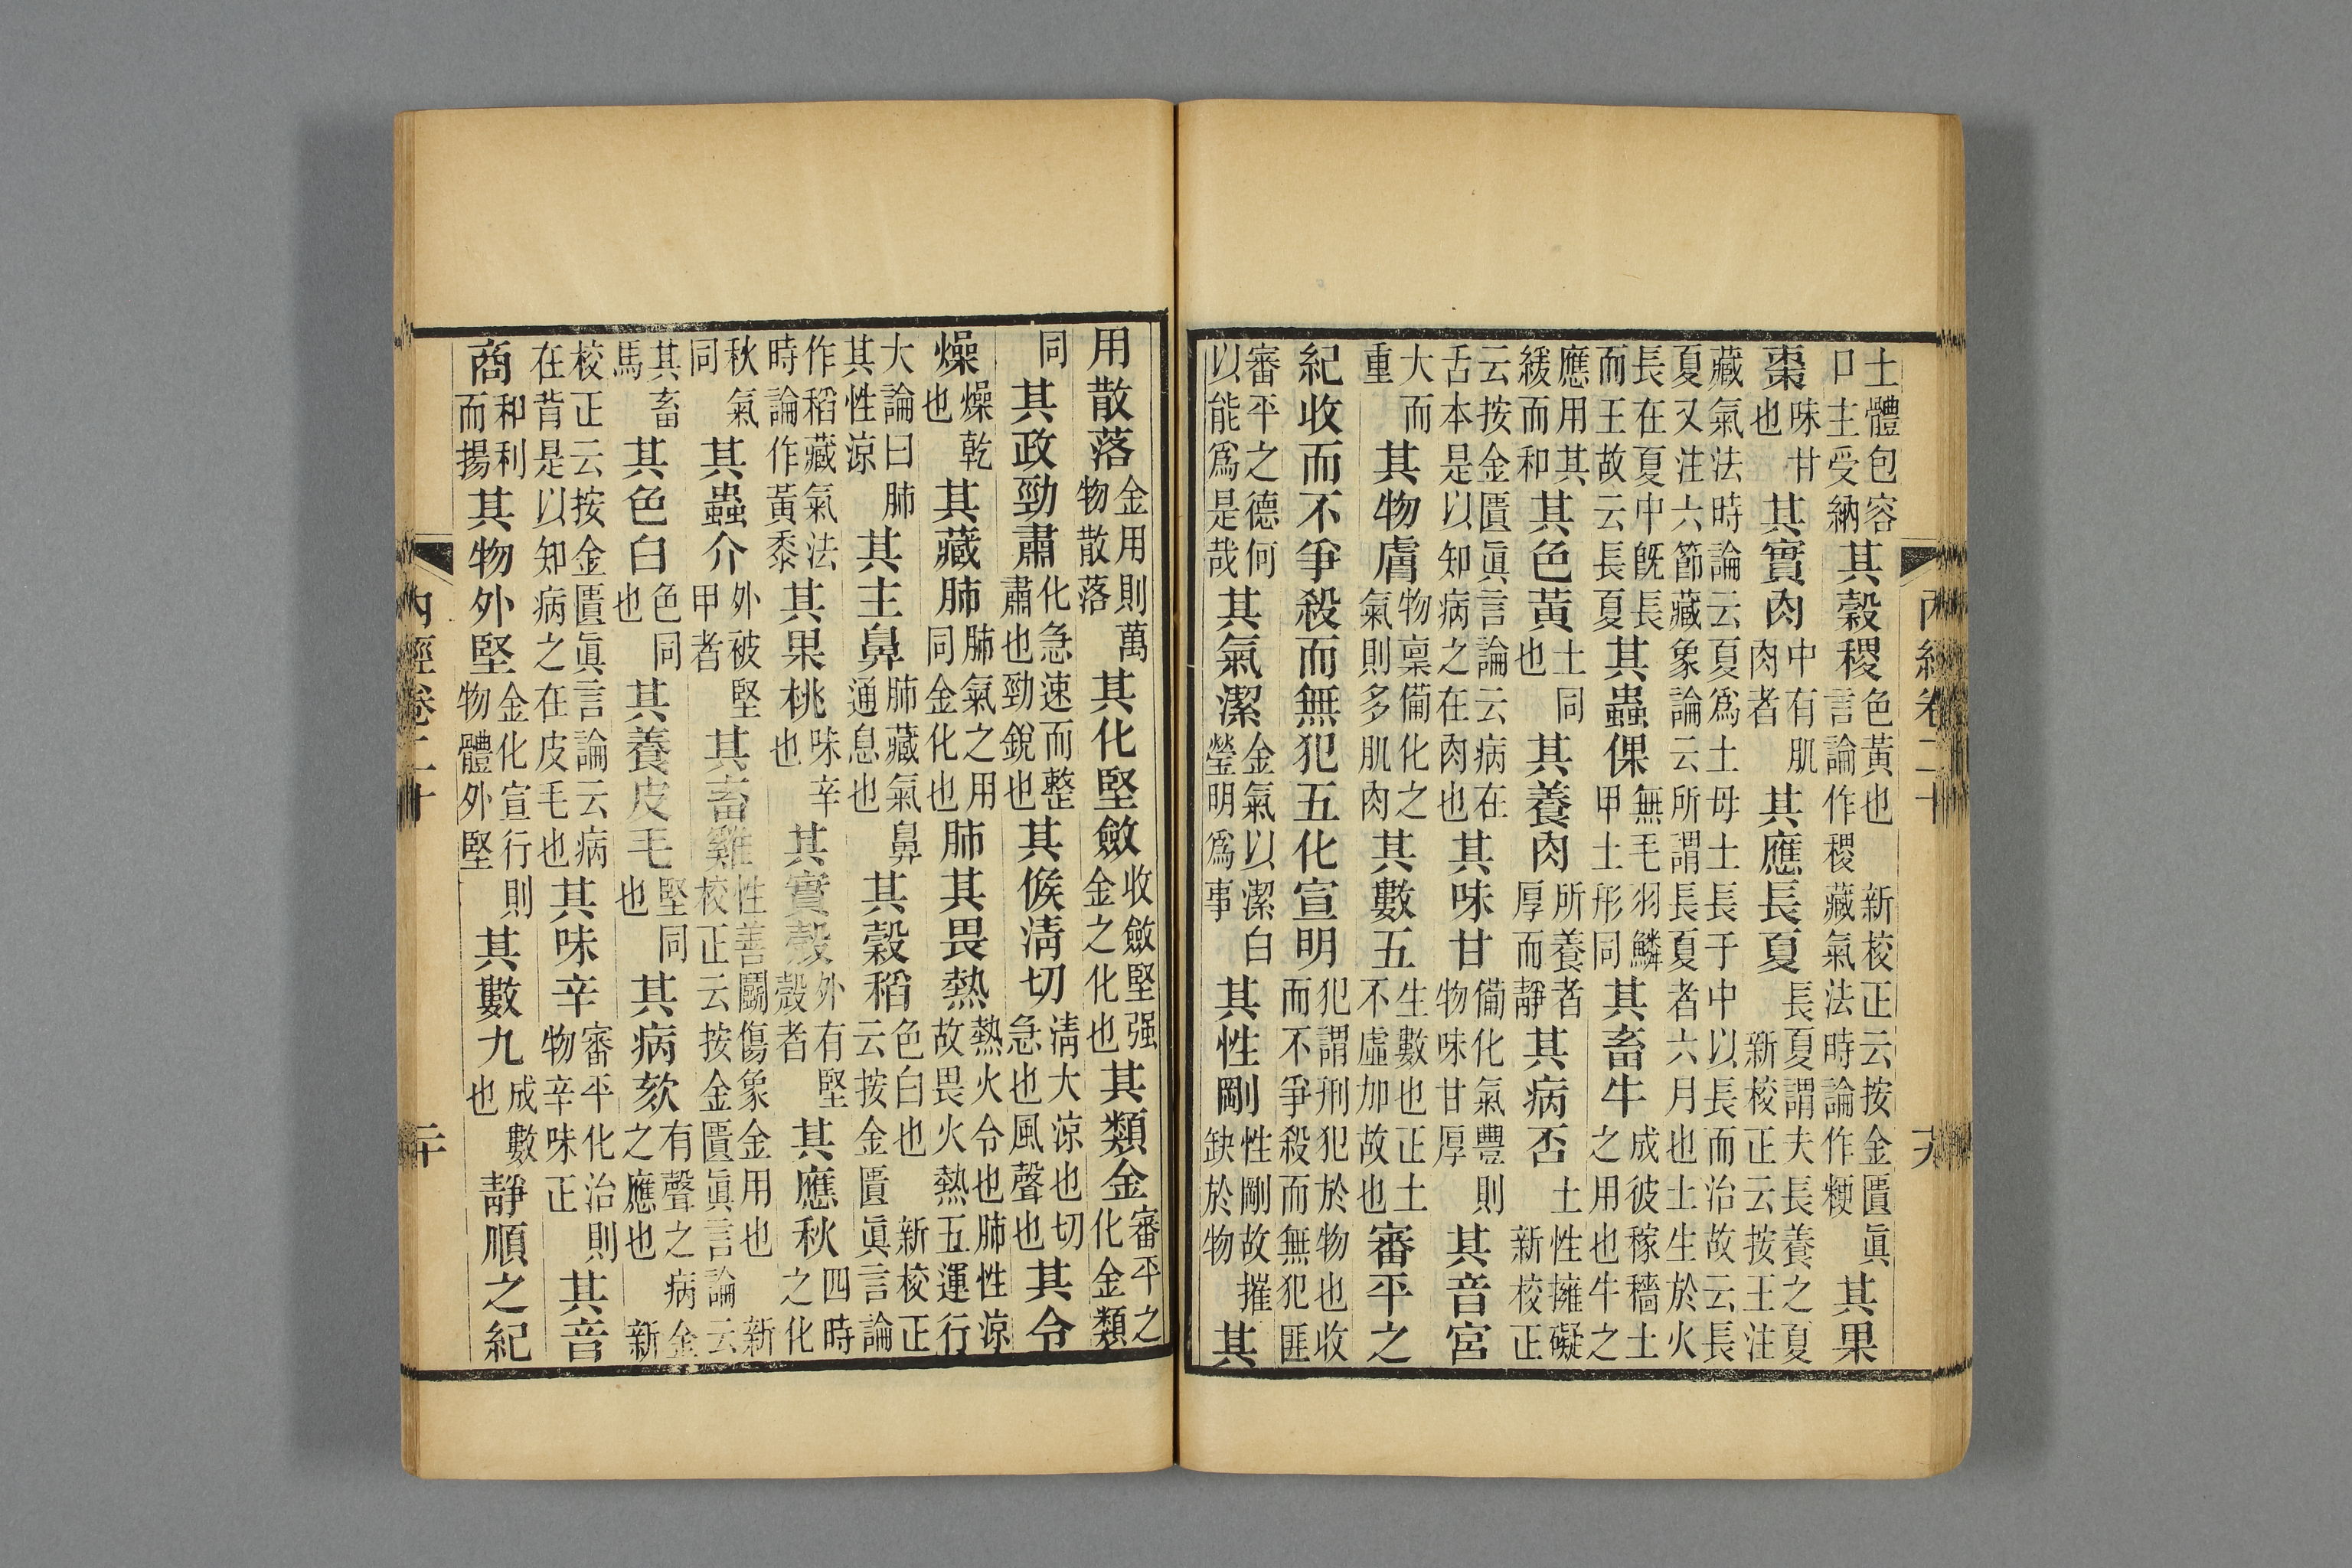 內經卷二十
土體包容口主受納其穀稷色黃也 新校正云按金匱眞言論作稷藏氣法時論作粳其果
棗味甘也其實肉中有肌肉者其應長夏長夏謂夫長養之夏新校正云按王注
藏氣法時論云夏爲土母土長于中以長而治故云長夏又注六節藏象論云所謂長夏者六月也土生於火
長在夏中旣長而王故云長夏其蟲倮無毛羽鱗甲土形同其畜牛成彼稼穡土之用也牛之
應用其緩而和其色黃土同也其養肉所養者厚而靜其病否土性擁礙新校正
云按金匱眞言論云病在舌本是以知病之在肉也其味甘備化氣豐則物味甘厚其音宮
大而重其物膚物稟備化之氣則多肌肉其數五生數也正土不虛加故也審平之
紀收而不爭殺而無犯五化宣明犯謂刑犯於物也收而不爭殺而無犯匪
審平之德何以能爲是哉其氣潔金氣以潔白瑩明爲事其性剛性剛故摧缺於物其
用散落金用則萬物散落其化堅斂收斂堅强金之化也其類金審平之化金類
同其政勁肅化急速而整肅也勁銳也其候淸切淸大涼也切急也風聲也其令
燥燥乾也其藏肺肺氣之用同金化也肺其畏熱熱火令也肺性涼故畏火熱五運行
大論曰肺其性涼其主鼻肺藏氣鼻通息也其穀稻色白也 新校正云按金匱眞言論
作稻藏氣法時論作黃黍其果桃味辛也其實殼外有堅殼者其應秋四時之化
秋氣同其蟲介外被堅甲者其畜雞性善鬭傷象金用也 新校正云按金匱眞言論云
其畜馬其色白色同也其養皮毛堅同也其病欬有聲之病金之應也 新
校正云按金匱眞言論云病在背是以知病之在皮毛也其味辛審平化治則物辛味正其音
商和利而揚其物外堅金化宣行則物體外堅其數九成數也靜順之紀
內經卷二十
二十